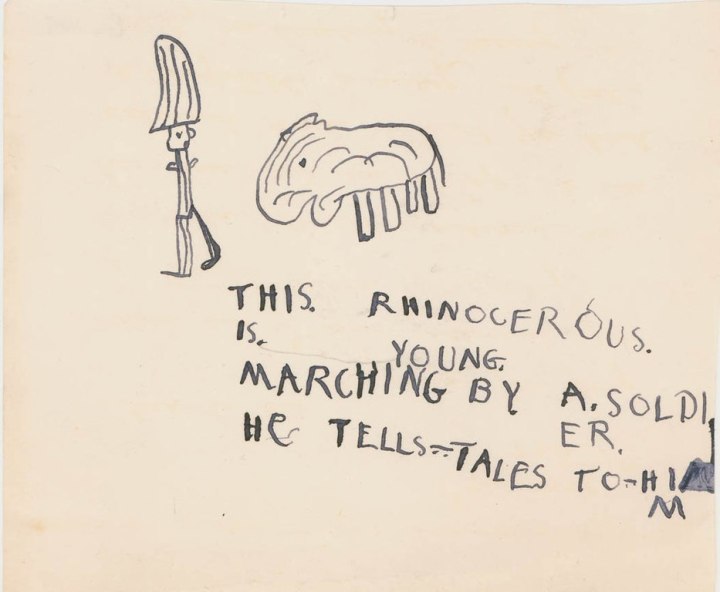 THIS. RHINOCEROUS.
IS. YOUNG.
MARCHING BY A. SOLDI
ER.
HE TELLS=TALES TO-HI
M